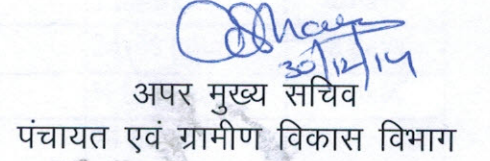 30/12/14
अपर मुख्य सचिव
पंचायत एवं ग्रामीण विकास विभाग